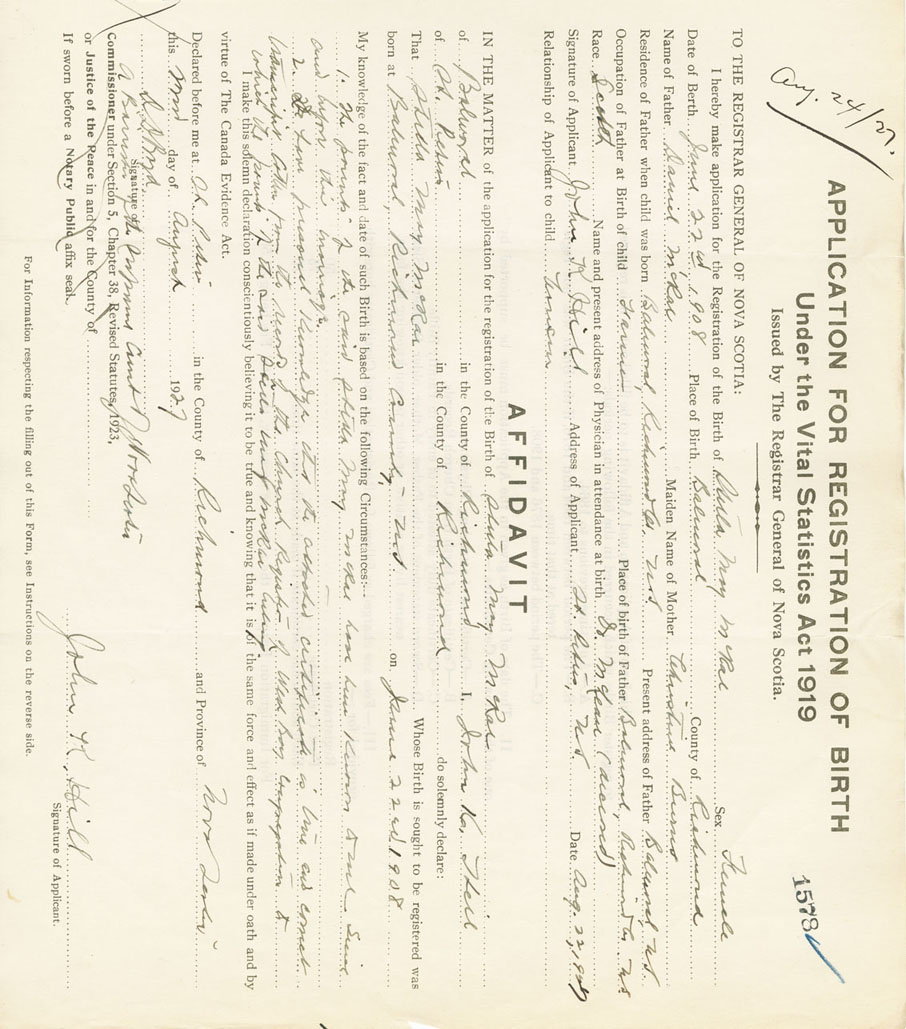 Aug. 24/27.
APPLICATION FOR REGISTRATION OF BIRTH
1578
Under the Vital Statistics Act 1919
Issued by The Registrar General of Nova Scotia.
TO THE REGISTRAR GENERAL OF NOVA SCOTIA:
I hereby make application for the Registration of the Birth of May McRae Sex Female
Date of Berth June 22nd 1908 Place of Birth Balmoral County of Richmond
Name of Father Daniel McRae Maiden Name of Mother Christine
Residence of Father when child was born Balmoral, Richmond Co. N.S. Present address of Father Balmoral, N.S.
Occupation of Father at Birth of child Farmer Place of birth of Father Balmoral, Richmond Co. N.S.
Race Scotch Name and present address of Physician in attendance at birth. Dr. McLean
Signature of Applicant John K. Hill Address of Applicant St. Peters, N.S. Date Aug. 22, 1927
Relationship of Applicant to child
AFFIDAVIT
IN THE MATTER of the application for the registration of the Birth of May McRae
of Balmoral in the County of Richmond I, John K. Hill
of St. Peters in the County of Richmond do solemnly declare:
That May McRae Whose Birth is sought to be registered was
born at Balmoral, Richmond County N.S. on June 22nd 1908
My knowledge of the fact and date of such Birth is based on the following Circumstances:—
1. The parents of the said May McRae have been known to me since
and upon their marriage.
2. from personal knowledge the certificate is true and correct
from the record of the Church Register of congregation
the parents of the said May McRae
I make this solemn declaration conscientiously believing it to be true and knowing that it is of the same force and effect as if made under oath and by
virtue of The Canada Evidence Act.
Declared before me at St. Peters in the County of Richmond and Province of Nova Scotia
this 22nd day of August 1927
Signature
A Barrister of the Supreme Court of Nova Scotia
John K. Hill
Signature of Applicant.
Commissioner under Section 5, Chapter 38, Revised Statutes, 1923,
or Justice of the Peace in and for the County of
If sworn before a Notary Public affix seal.
For Information respecting the filling out of this Form, see Instructions on the reverse side.